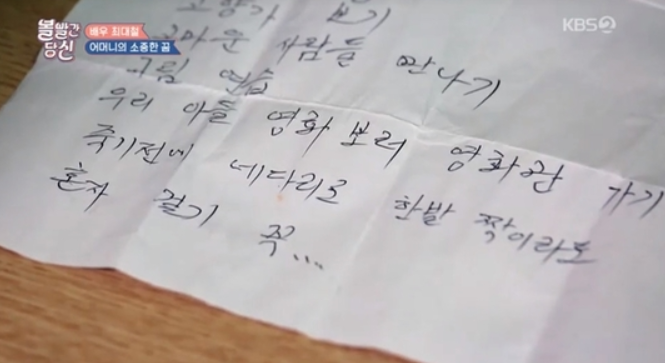 볼빨간 당신
배우 최대철
어머니의 소중한 꿈
KBS2
고향가 보기
고마운 사람들 만나기
그림 연습
우리 아들 영화 보러 영화관 가기
죽기전에 네다리로 한발 짝이라도
혼자 걸기 꼭...